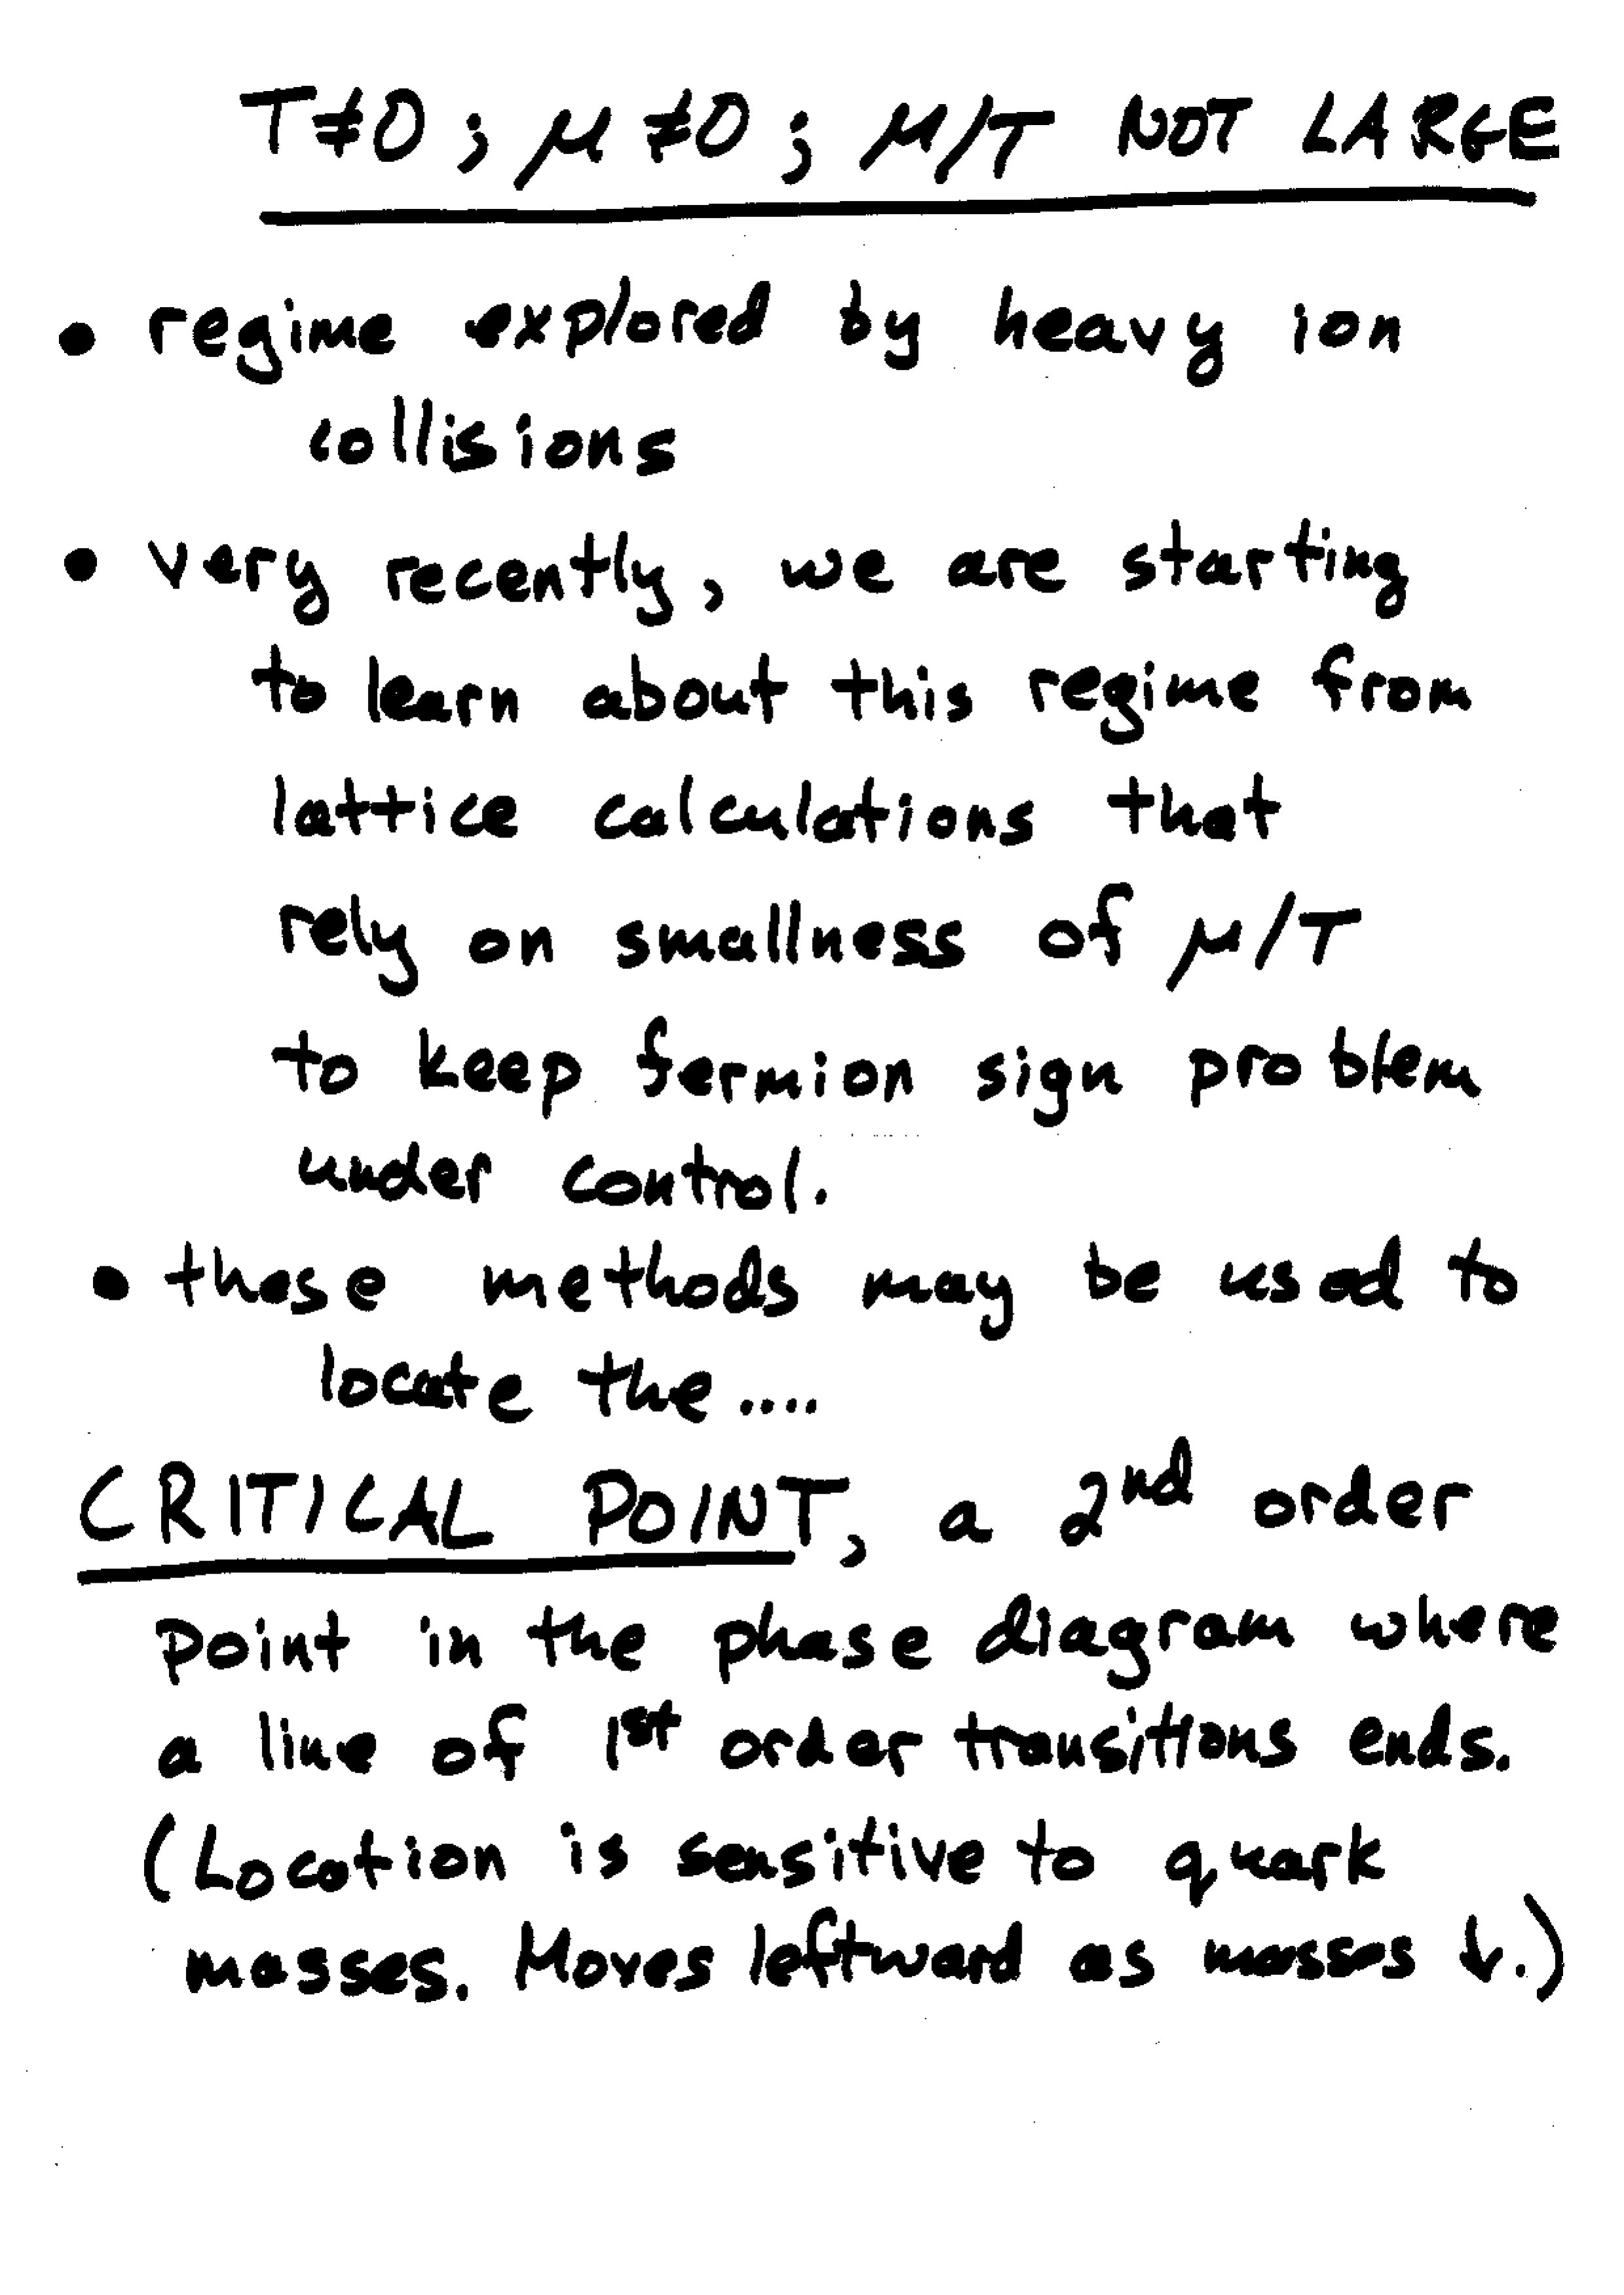 T≠0; μ≠0; μ/T NOT LARGE
• regime explored by heavy ion
collisions
• very recently, we are starting
to learn about this regime from
lattice calculations that
rely on smallness of μ/T
to keep fermion sign problem
under control.
• these methods may be used to
locate the ....
CRITICAL POINT, a 2nd order
point in the phase diagram where
a line of 1st order transitions ends.
(Location is sensitive to quark
masses. Moves leftward as masses ↓.)